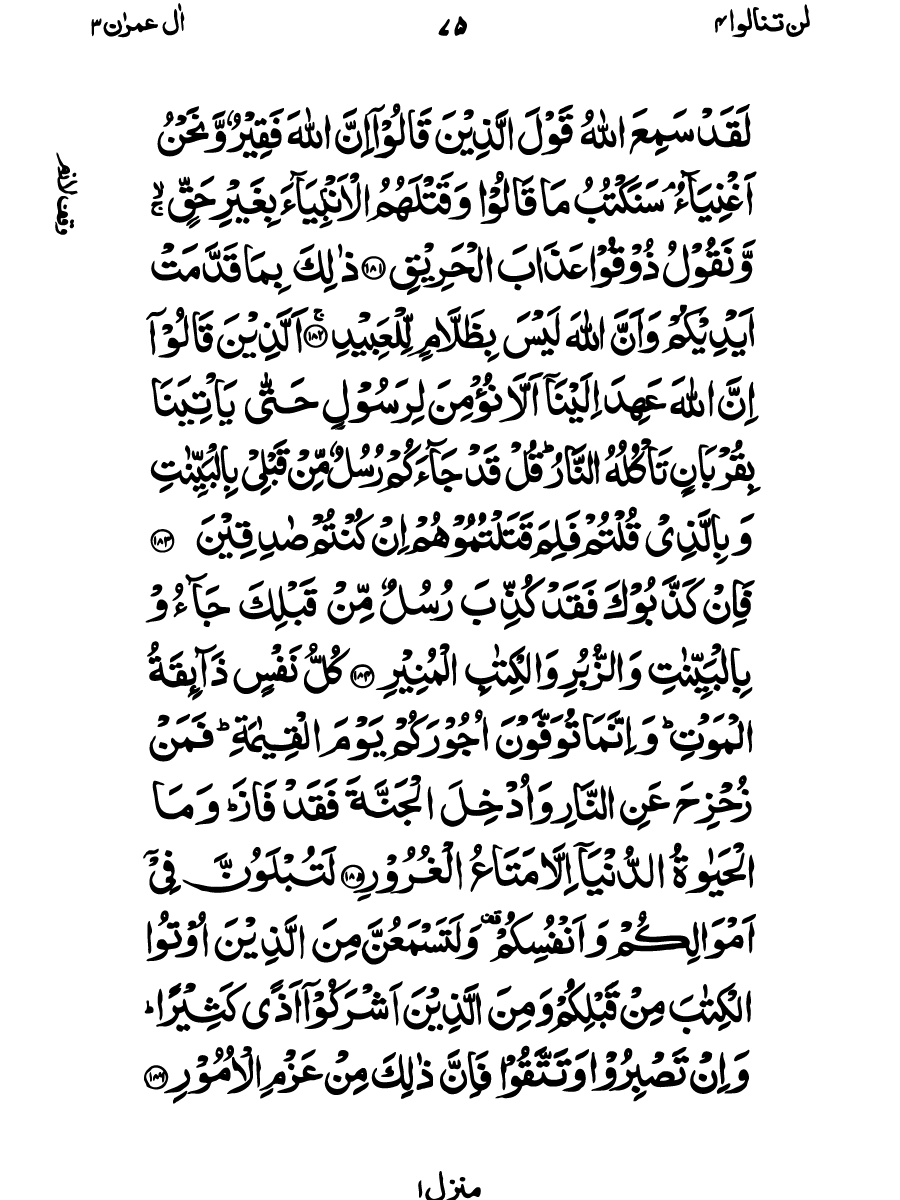 لن تنالوا ۴
۷۵
اٰل عمرٰن ۳
لَقَدْ سَمِعَ اللّٰهُ قَوْلَ الَّذِیْنَ قَالُوْۤا اِنَّ اللّٰهَ فَقِیْرٌ وَّ نَحْنُ
اَغْنِیَآءُ ۘ سَنَكْتُبُ مَا قَالُوْا وَ قَتْلَهُمُ الْاَنْۢبِیَآءَ بِغَیْرِ حَقٍّ ۙۚ
وَّ نَقُوْلُ ذُوْقُوْا عَذَابَ الْحَرِیْقِ ﴿۱۸۱﴾ ذٰلِكَ بِمَا قَدَّمَتْ
اَیْدِیْكُمْ وَ اَنَّ اللّٰهَ لَیْسَ بِظَلَّامٍ لِّلْعَبِیْدِ ﴿۱۸۲﴾ۚ اَلَّذِیْنَ قَالُوْۤا
اِنَّ اللّٰهَ عَهِدَ اِلَیْنَاۤ اَلَّا نُؤْمِنَ لِرَسُوْلٍ حَتّٰی یَاْتِیَنَا
بِقُرْبَانٍ تَاْكُلُهُ النَّارُ ؕ قُلْ قَدْ جَآءَكُمْ رُسُلٌ مِّنْ قَبْلِیْ بِالْبَیِّنٰتِ
وَ بِالَّذِیْ قُلْتُمْ فَلِمَ قَتَلْتُمُوْهُمْ اِنْ كُنْتُمْ صٰدِقِیْنَ ﴿۱۸۳﴾
فَاِنْ كَذَّبُوْكَ فَقَدْ كُذِّبَ رُسُلٌ مِّنْ قَبْلِكَ جَآءُوْ
بِالْبَیِّنٰتِ وَ الزُّبُرِ وَ الْكِتٰبِ الْمُنِیْرِ ﴿۱۸۴﴾ كُلُّ نَفْسٍ ذَآىِٕقَةُ
الْمَوْتِ ؕ وَ اِنَّمَا تُوَفَّوْنَ اُجُوْرَكُمْ یَوْمَ الْقِیٰمَةِ ؕ فَمَنْ
زُحْزِحَ عَنِ النَّارِ وَ اُدْخِلَ الْجَنَّةَ فَقَدْ فَازَ ؕ وَ مَا
الْحَیٰوةُ الدُّنْیَاۤ اِلَّا مَتَاعُ الْغُرُوْرِ ﴿۱۸۵﴾ لَتُبْلَوُنَّ فِیْۤ
اَمْوَالِكُمْ وَ اَنْفُسِكُمْ ۫ وَ لَتَسْمَعُنَّ مِنَ الَّذِیْنَ اُوْتُوا
الْكِتٰبَ مِنْ قَبْلِكُمْ وَ مِنَ الَّذِیْنَ اَشْرَكُوْۤا اَذًی كَثِیْرًا ؕ
وَ اِنْ تَصْبِرُوْا وَ تَتَّقُوْا فَاِنَّ ذٰلِكَ مِنْ عَزْمِ الْاُمُوْرِ ﴿۱۸۶﴾
وقف لازم
منزل ۱